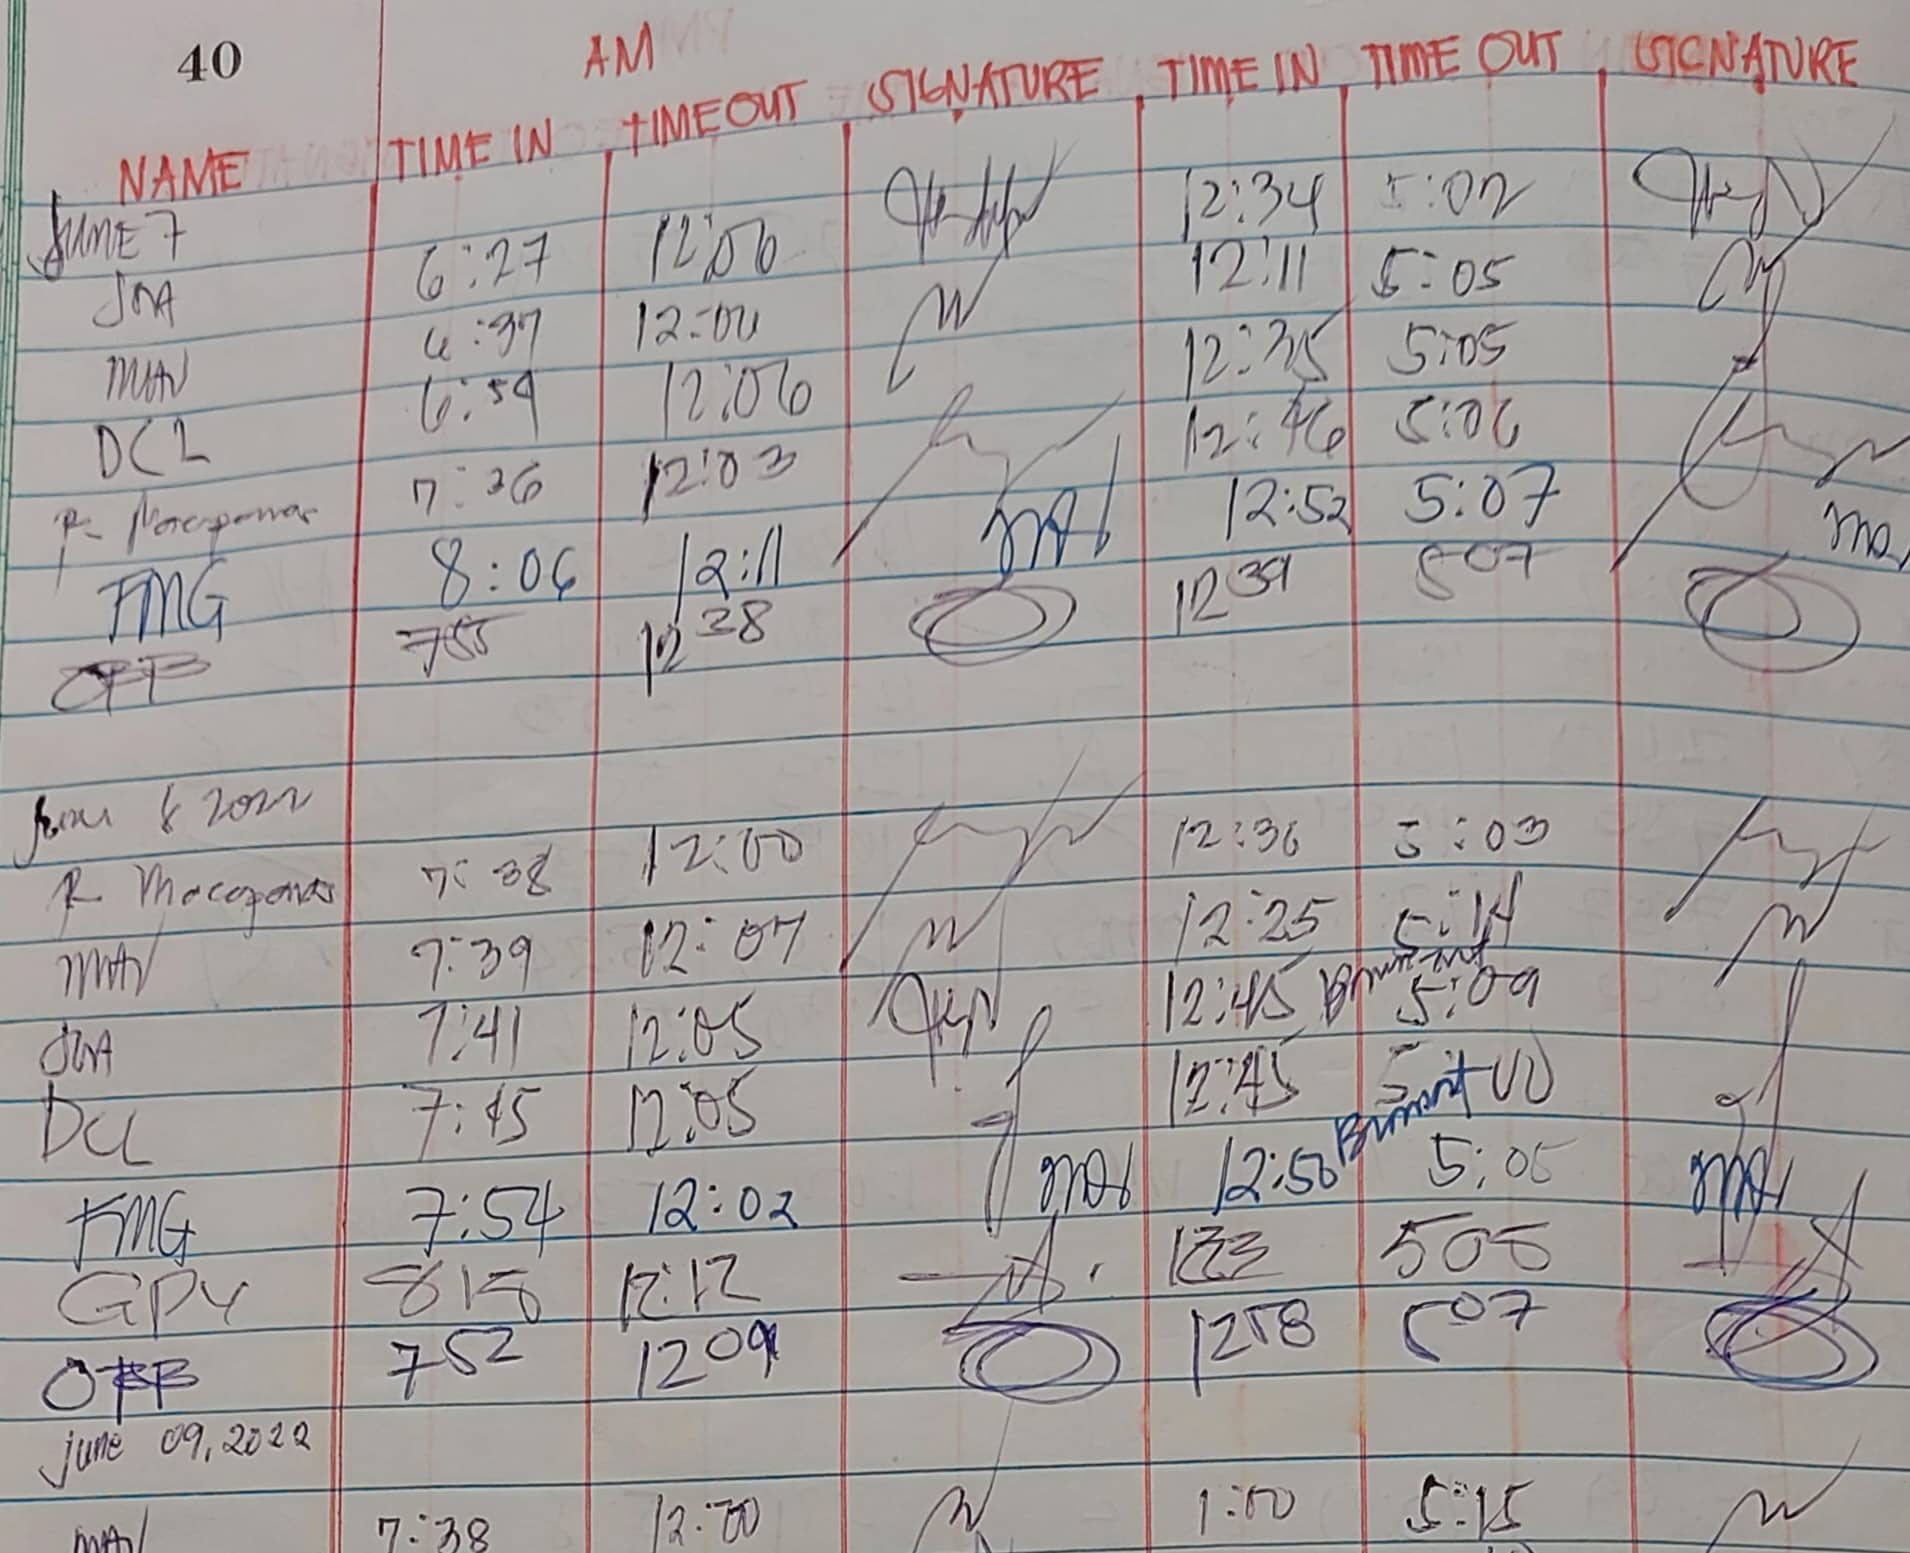 40
AM
NAME TIME IN TIME OUT SIGNATURE TIME IN TIME OUT SIGNATURE
JUNE 7
JMA 6:27 12:06 12:34 5:02
MAV 6:37 12:00 12:11 5:05
DCL 6:59 12:06 12:35 5:05
R Macaponas 7:36 12:03 12:46 5:06
FMG 8:06 12:11 12:52 5:07
OFB 755 1238 1239 507
June 8 2022
R Macaponas 7:38 12:00 12:36 5:03
MAV 7:39 12:07 12:25 5:14
JMA 7:41 12:05 12:45 5:09
DCL 7:45 12:05 12:45 5:00
FMG 7:54 12:02 12:50 5:05
GPY 818 12:12 1233 505
OFB 752 1209 1258 507
june 09, 2022
MAV 7:38 12:00 1:00 5:15